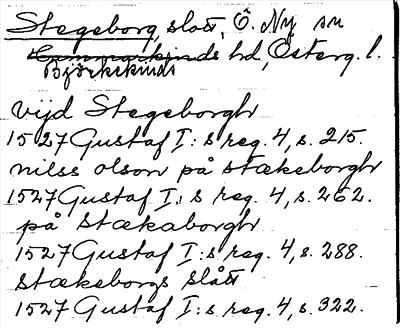 Stegeborg, slott, Ö. Ny sn
Hammarkinds hd, Österg. l.
Björkekinds
vijd Stegeborgh
1527 Gustaf I:s reg. 4, s. 215.
nilss olson på stækeborgh
1527 Gustaf I:s reg. 4, s. 262.
på Stækaborgh
1527 Gustaf I:s reg. 4, s. 288.
Stækeborgs slått
1527 Gustaf I:s reg. 4, s. 322.